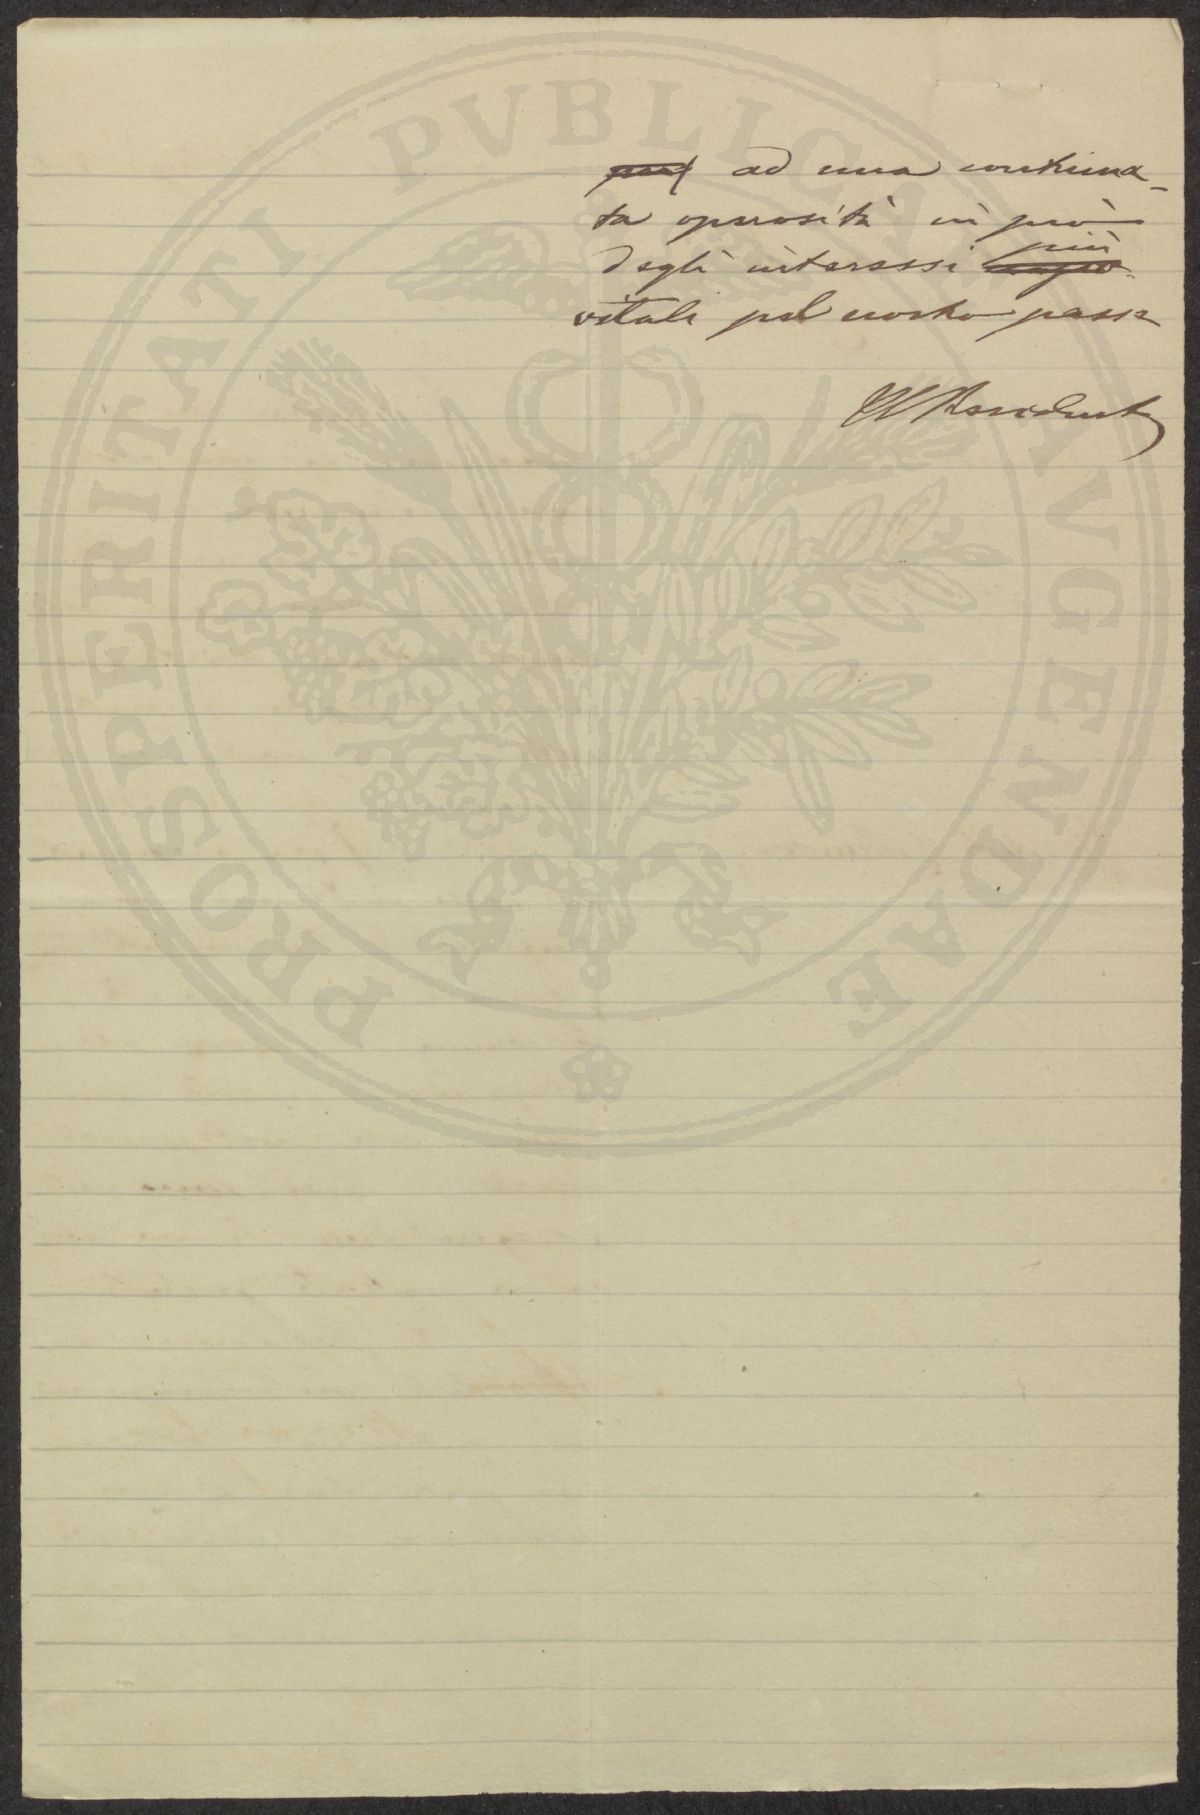 ad una continua-
ta operosità in prò
degli interessi più
vitali pel nostro paese
Il Presidente
PROSPERITATI PVBLICAE AVGENDAE